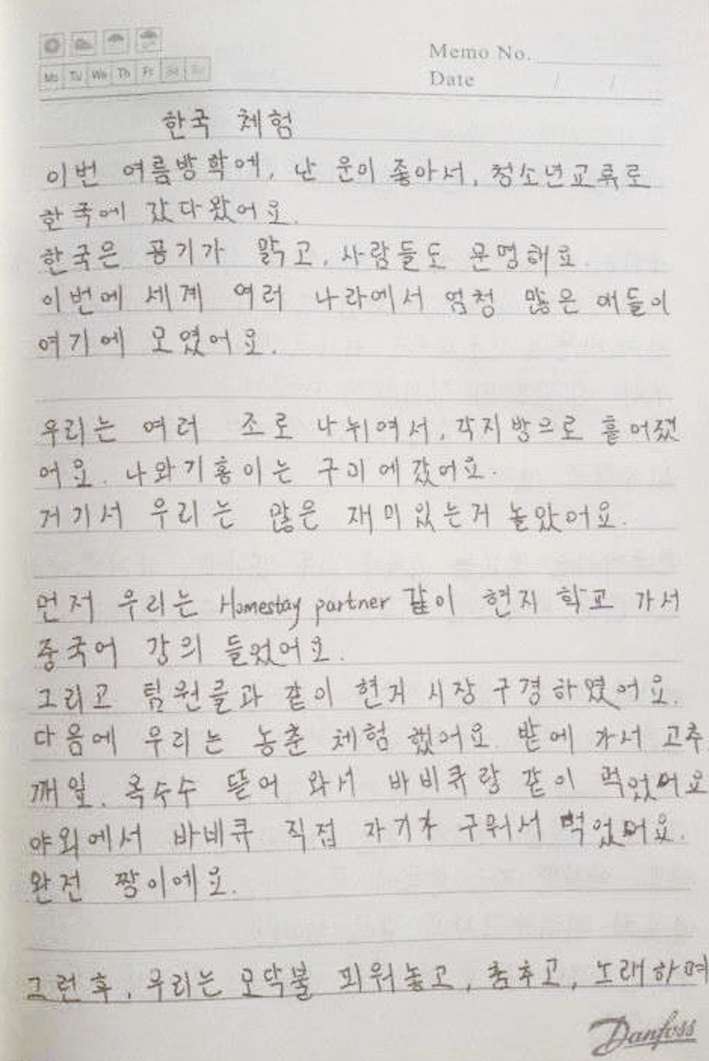 Memo No.
Mo Tu We Th Fr Sa Su
Date / /
한국 체험
이번 여름방학에, 난 운이 좋아서, 청소년교류로
한국에 갔다왔어요.
한국은 공기가 맑고, 사람들도 문명해요.
이번에 세계 여러 나라에서 엄청 많은 애들이
여기에 모였어요.
우리는 여러 조로 나뉘여서, 각지방으로 흩어졌
어요. 나와기홍이는 구미에갔어요.
거기서 우리는 많은 재미있는거 놀았어요.
먼저 우리는 Homestay partner 같이 현지 학교 가서
중국어 강의 들었어요.
그리고 팀원들과 같이 현지 시장 구경하였어요.
다음에 우리는 농춘 체험 했어요. 밭에 가서 고추
깨잎. 옥수수 뜯어 와서 바비큐랑 같이 먹었어요
야외에서 바베큐 직접 자기가 구워서 먹었어요.
완전 짱이예요.
그런후, 우리는 모닥불 피워놓고, 춤추고, 노래하며
Danfoss